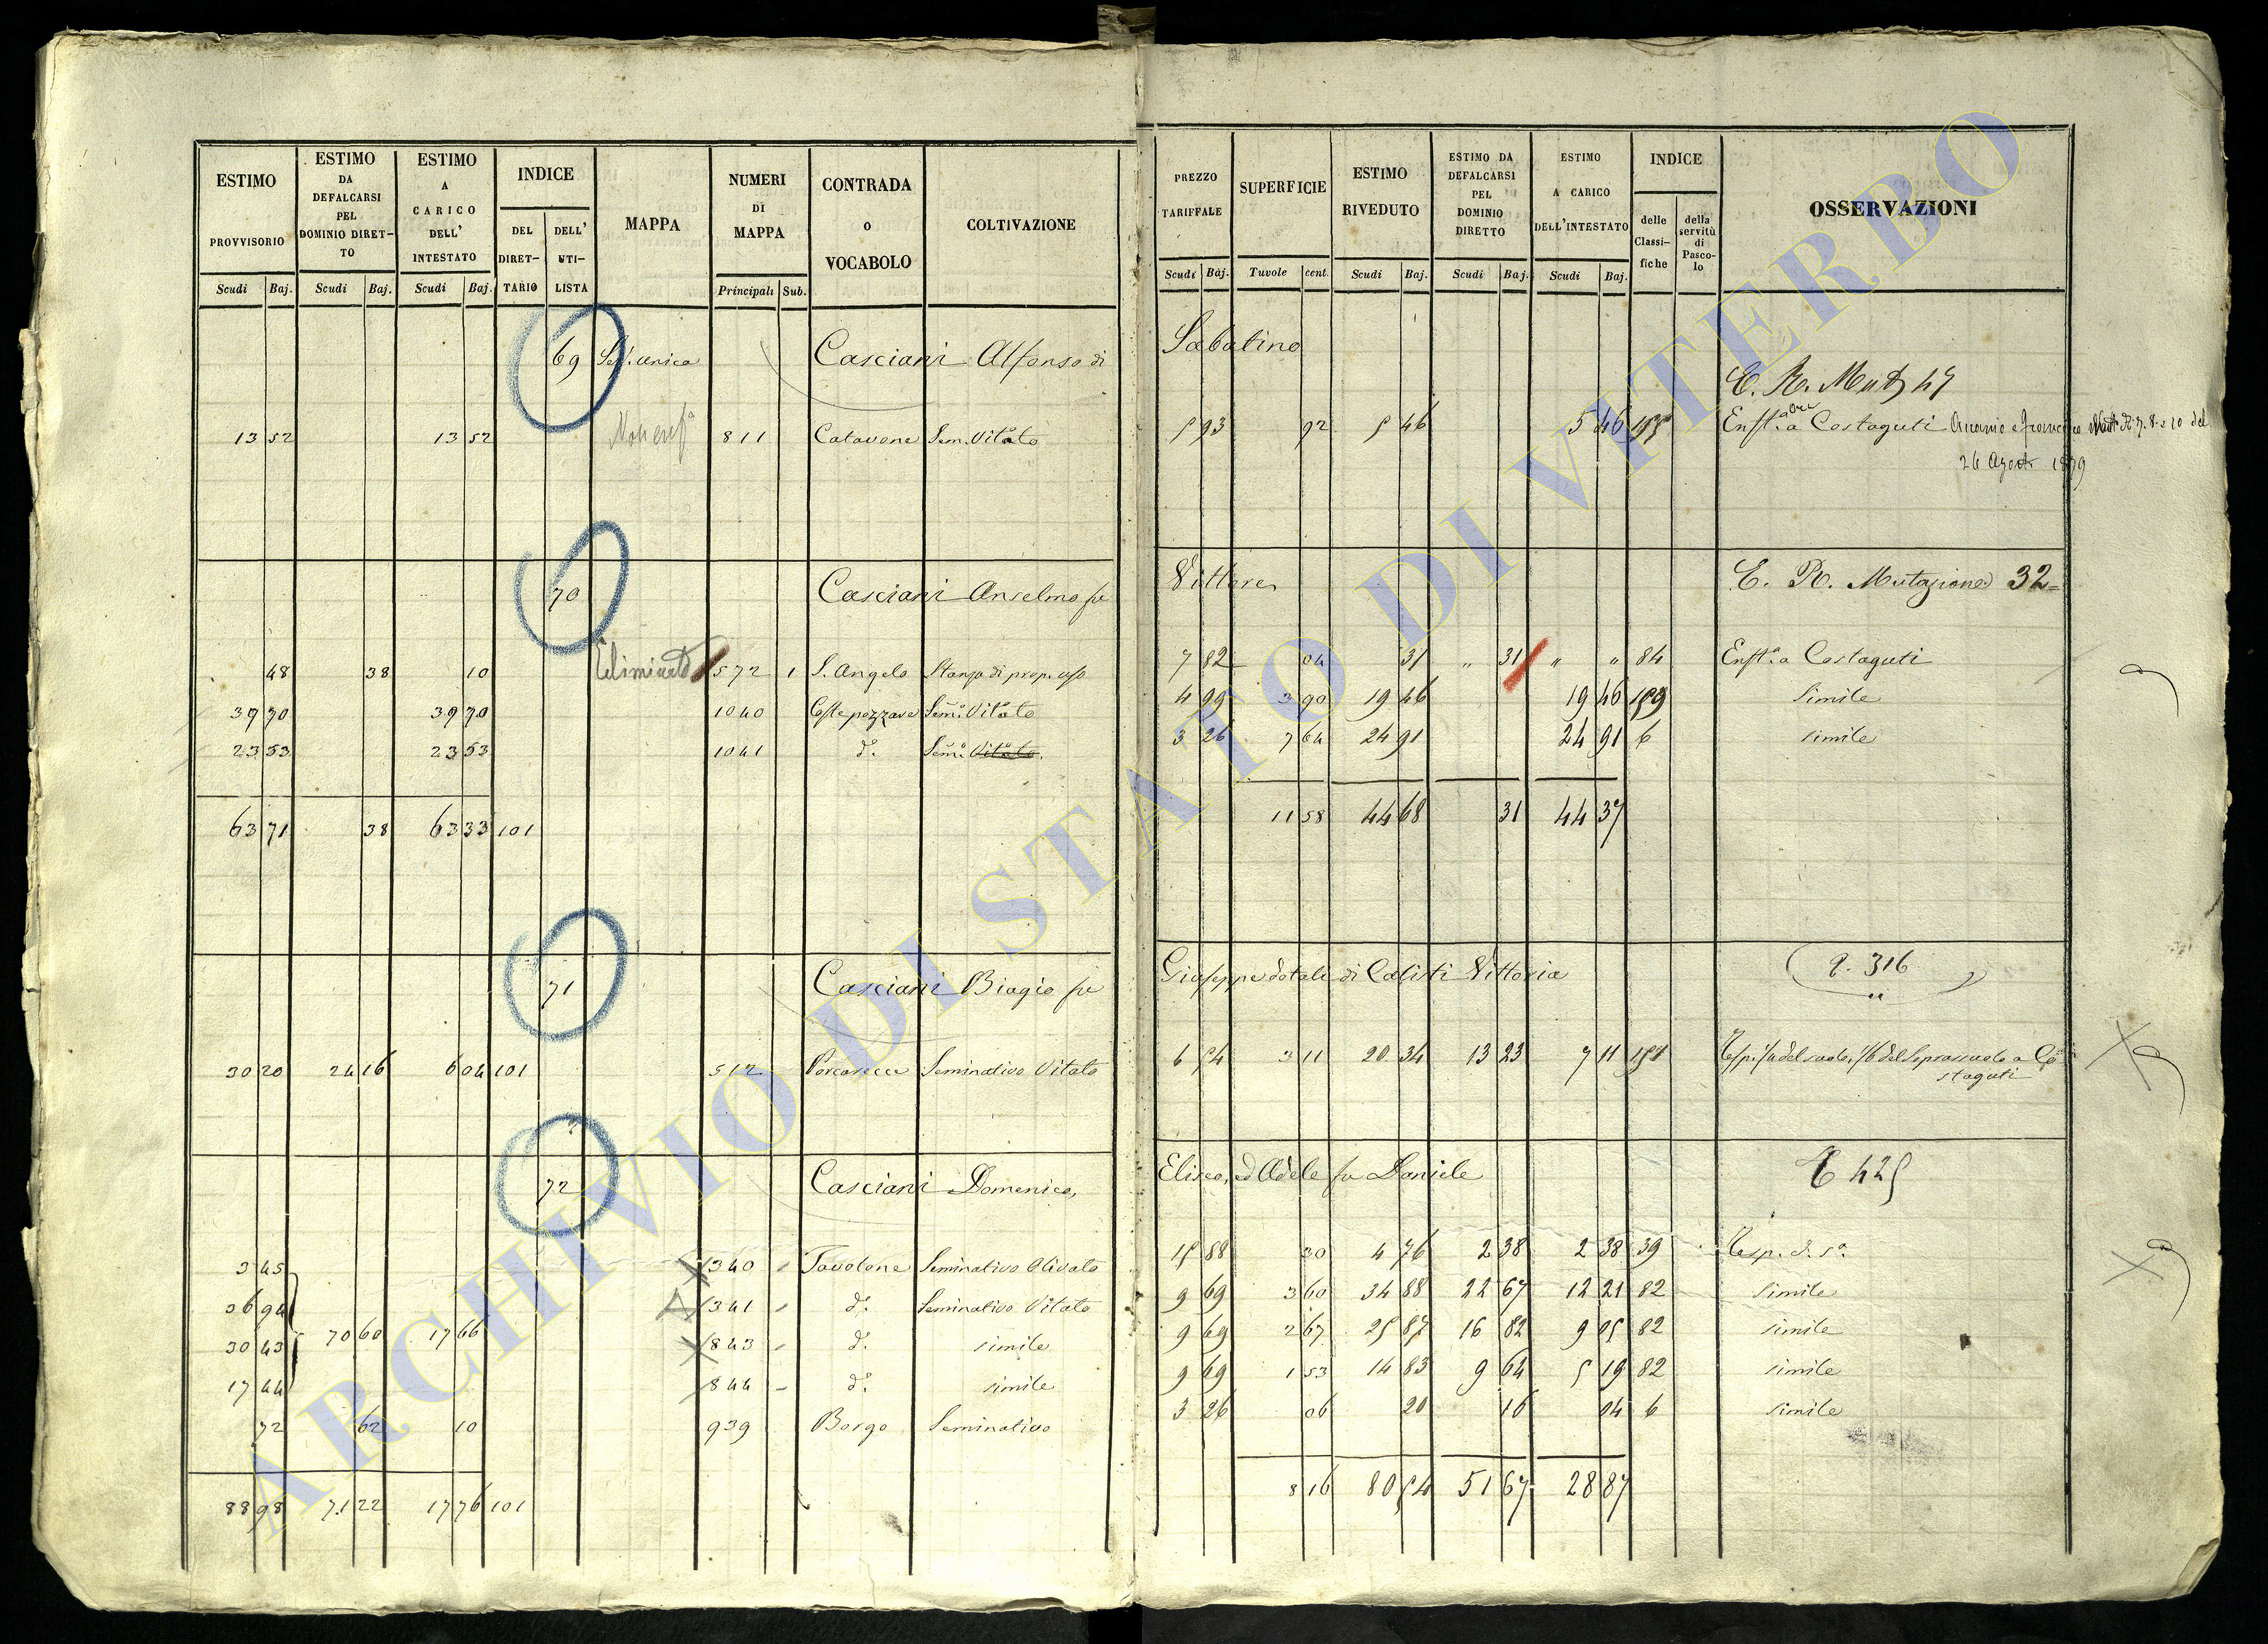 ESTIMO PROVVISORIO | ESTIMO DA DEFALCARSI PEL DOMINIO DIRET-TO | ESTIMO A CARICO DELL' INTESTATO | INDICE | MAPPA | NUMERI DI MAPPA | CONTRADA o VOCABOLO | COLTIVAZIONE | PREZZO TARIFFALE | SUPERFICIE | ESTIMO RIVEDUTO | ESTIMO DA DEFALCARSI PEL DOMINIO DIRETTO | ESTIMO A CARICO DELL'INTESTATO | INDICE | OSSERVAZIONI
Scudi Baj. | Scudi Baj. | Scudi Baj. | DEL DIRET-TARIO | DELL' UTI-LISTA | Principali Sub. | Scudi Baj. | Tavole cent. | Scudi Baj. | Scudi Baj. | Scudi Baj. | delle Classi-fiche | della servitù di Pasco-lo
69 Casciani Alfonso di Sabatino
E. R. Mut 47
13 52 | 13 52 | 811 | Catavone | Sem. Vitato | 5 93 | 92 | 5 46 | 5 46 | 155 | Costaguti
26 Agosto 1879
70 Casciani Anselmo fu Vittore
E. R. Mutazione 32
48 | 38 | 10 | Eliminato | 572 | 1 | S. Angelo | Stanza di prop. uso | 7 82 | 04 | 31 | " 31 | " " | 84 | Enft.a Costaguti
39 70 | 39 70 | 1040 | Costepozzare | Sem. Vitato | 4 99 | 3 90 | 19 46 | 19 46 | 159 | Simile
23 53 | 23 53 | 1041 | d.° | Sem. Vitato | 3 26 | 7 64 | 24 91 | 24 91 | 6 | simile
63 71 | 38 | 63 33 | 101 | 11 58 | 44 68 | 31 | 44 37
71 Casciani Biagio fu Giuseppe dotale di Calisti Vittoria
R. 316
30 20 | 24 16 | 6 04 | 101 | 512 | Porcareccie | Seminativo Vitato | 6 54 | 3 11 | 20 34 | 13 23 | 7 11 | 151 | Resp. 1/4 del suolo, 1/6 del Soprassuolo a Co
staguti
72 Casciani Domenico, Eliseo, ed Adele fu Daniele
E 425
3 45 | 1340 | Tavolone | Seminativo Olivato | 15 88 | 30 | 4 76 | 2 38 | 2 38 | 39
36 94 | 1341 | d.° | Seminativo Vitato | 9 69 | 3 60 | 34 88 | 22 67 | 12 21 | 82 | simile
30 43 | 70 60 | 17 66 | 843 | d.° | simile | 9 69 | 2 67 | 25 87 | 16 82 | 9 05 | 82 | simile
17 44 | 844 | d.° | simile | 9 69 | 1 53 | 14 83 | 9 64 | 5 19 | 82 | simile
72 | 62 | 10 | 939 | Borgo | Seminativo | 3 26 | 06 | 20 | 16 | 04 | 6 | simile
88 98 | 71 22 | 17 76 | 101 | 8 16 | 80 54 | 51 67 | 28 87
ARCHIVIO DI STATO DI VITERBO